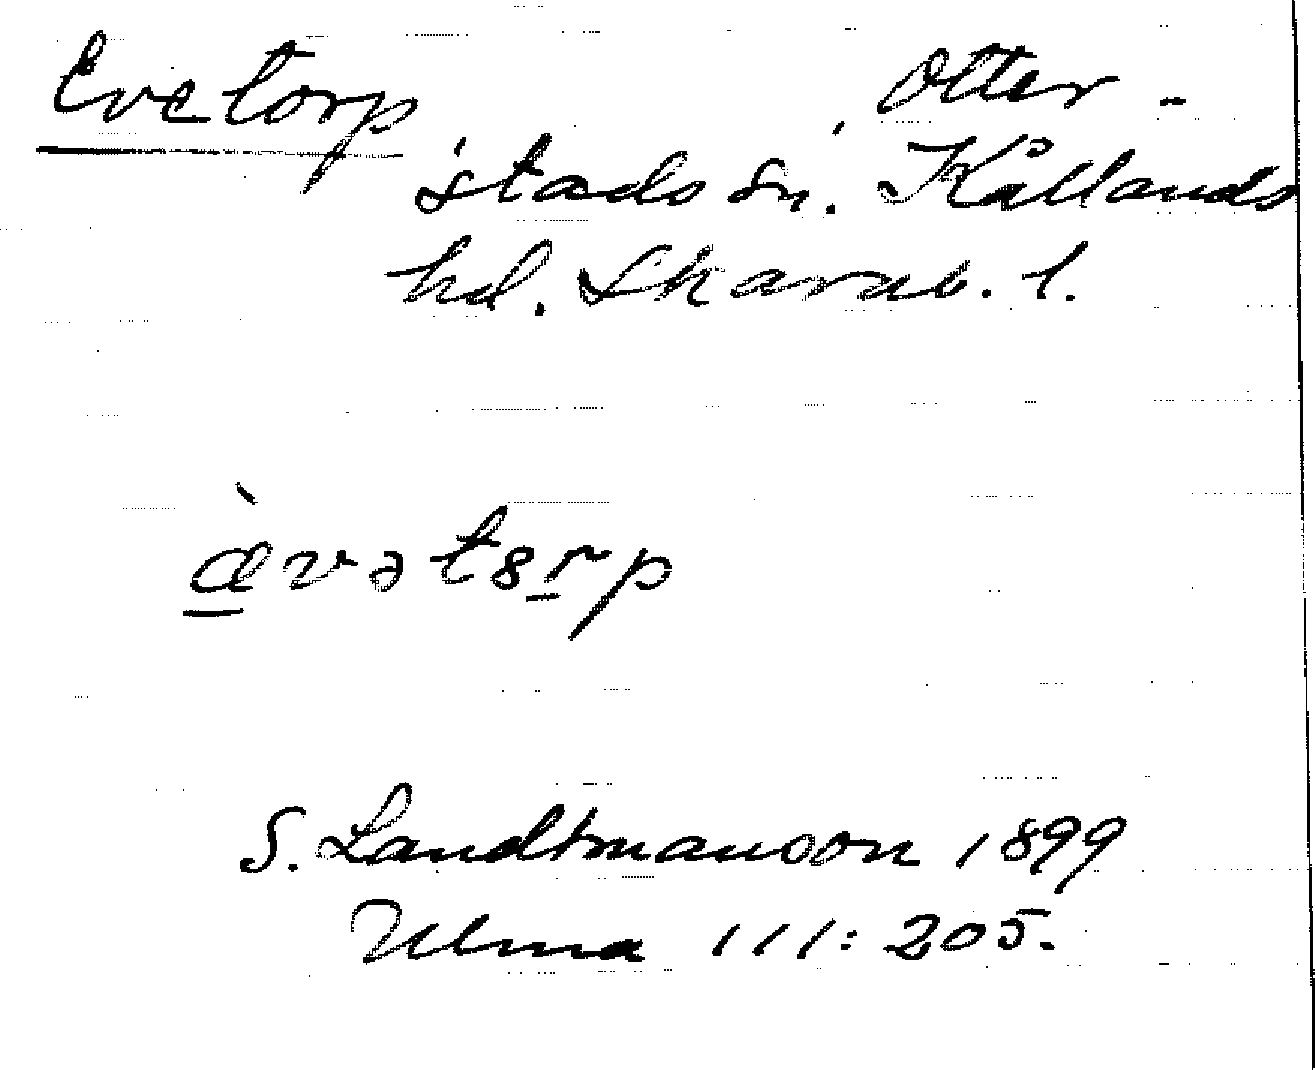 Evetorp Otter-
stads sn. Kållands
hd. Skarab. l.
æ̀vətɞrp
S. Landtmanson 1899
Ulma 111:205.